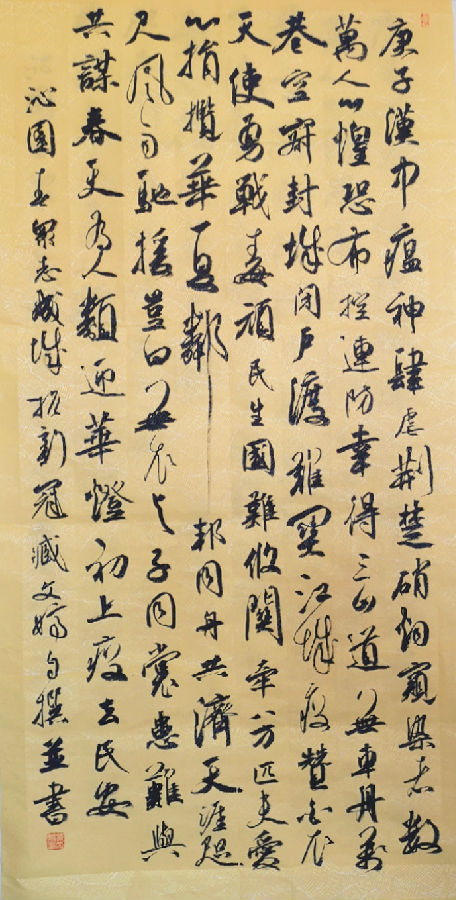 庚子漢市瘟神肆虐荆楚硝烟窺染者数
萬人心惶恐布控連防幸得三山道無車舟萬
巷空封城閉户渡難関江城疫贊白衣
天使勇戰毒頑民生國難攸関牽八方匹夫愛
心捐攬華夏鄰邦同舟共濟天涯咫
尺風雨馳援豈曰無衣与子同裳患難與
共謀春更為人類迎華燈初上疫去民安
沁園春眾志成城抗新冠臧文嬌自撰並書